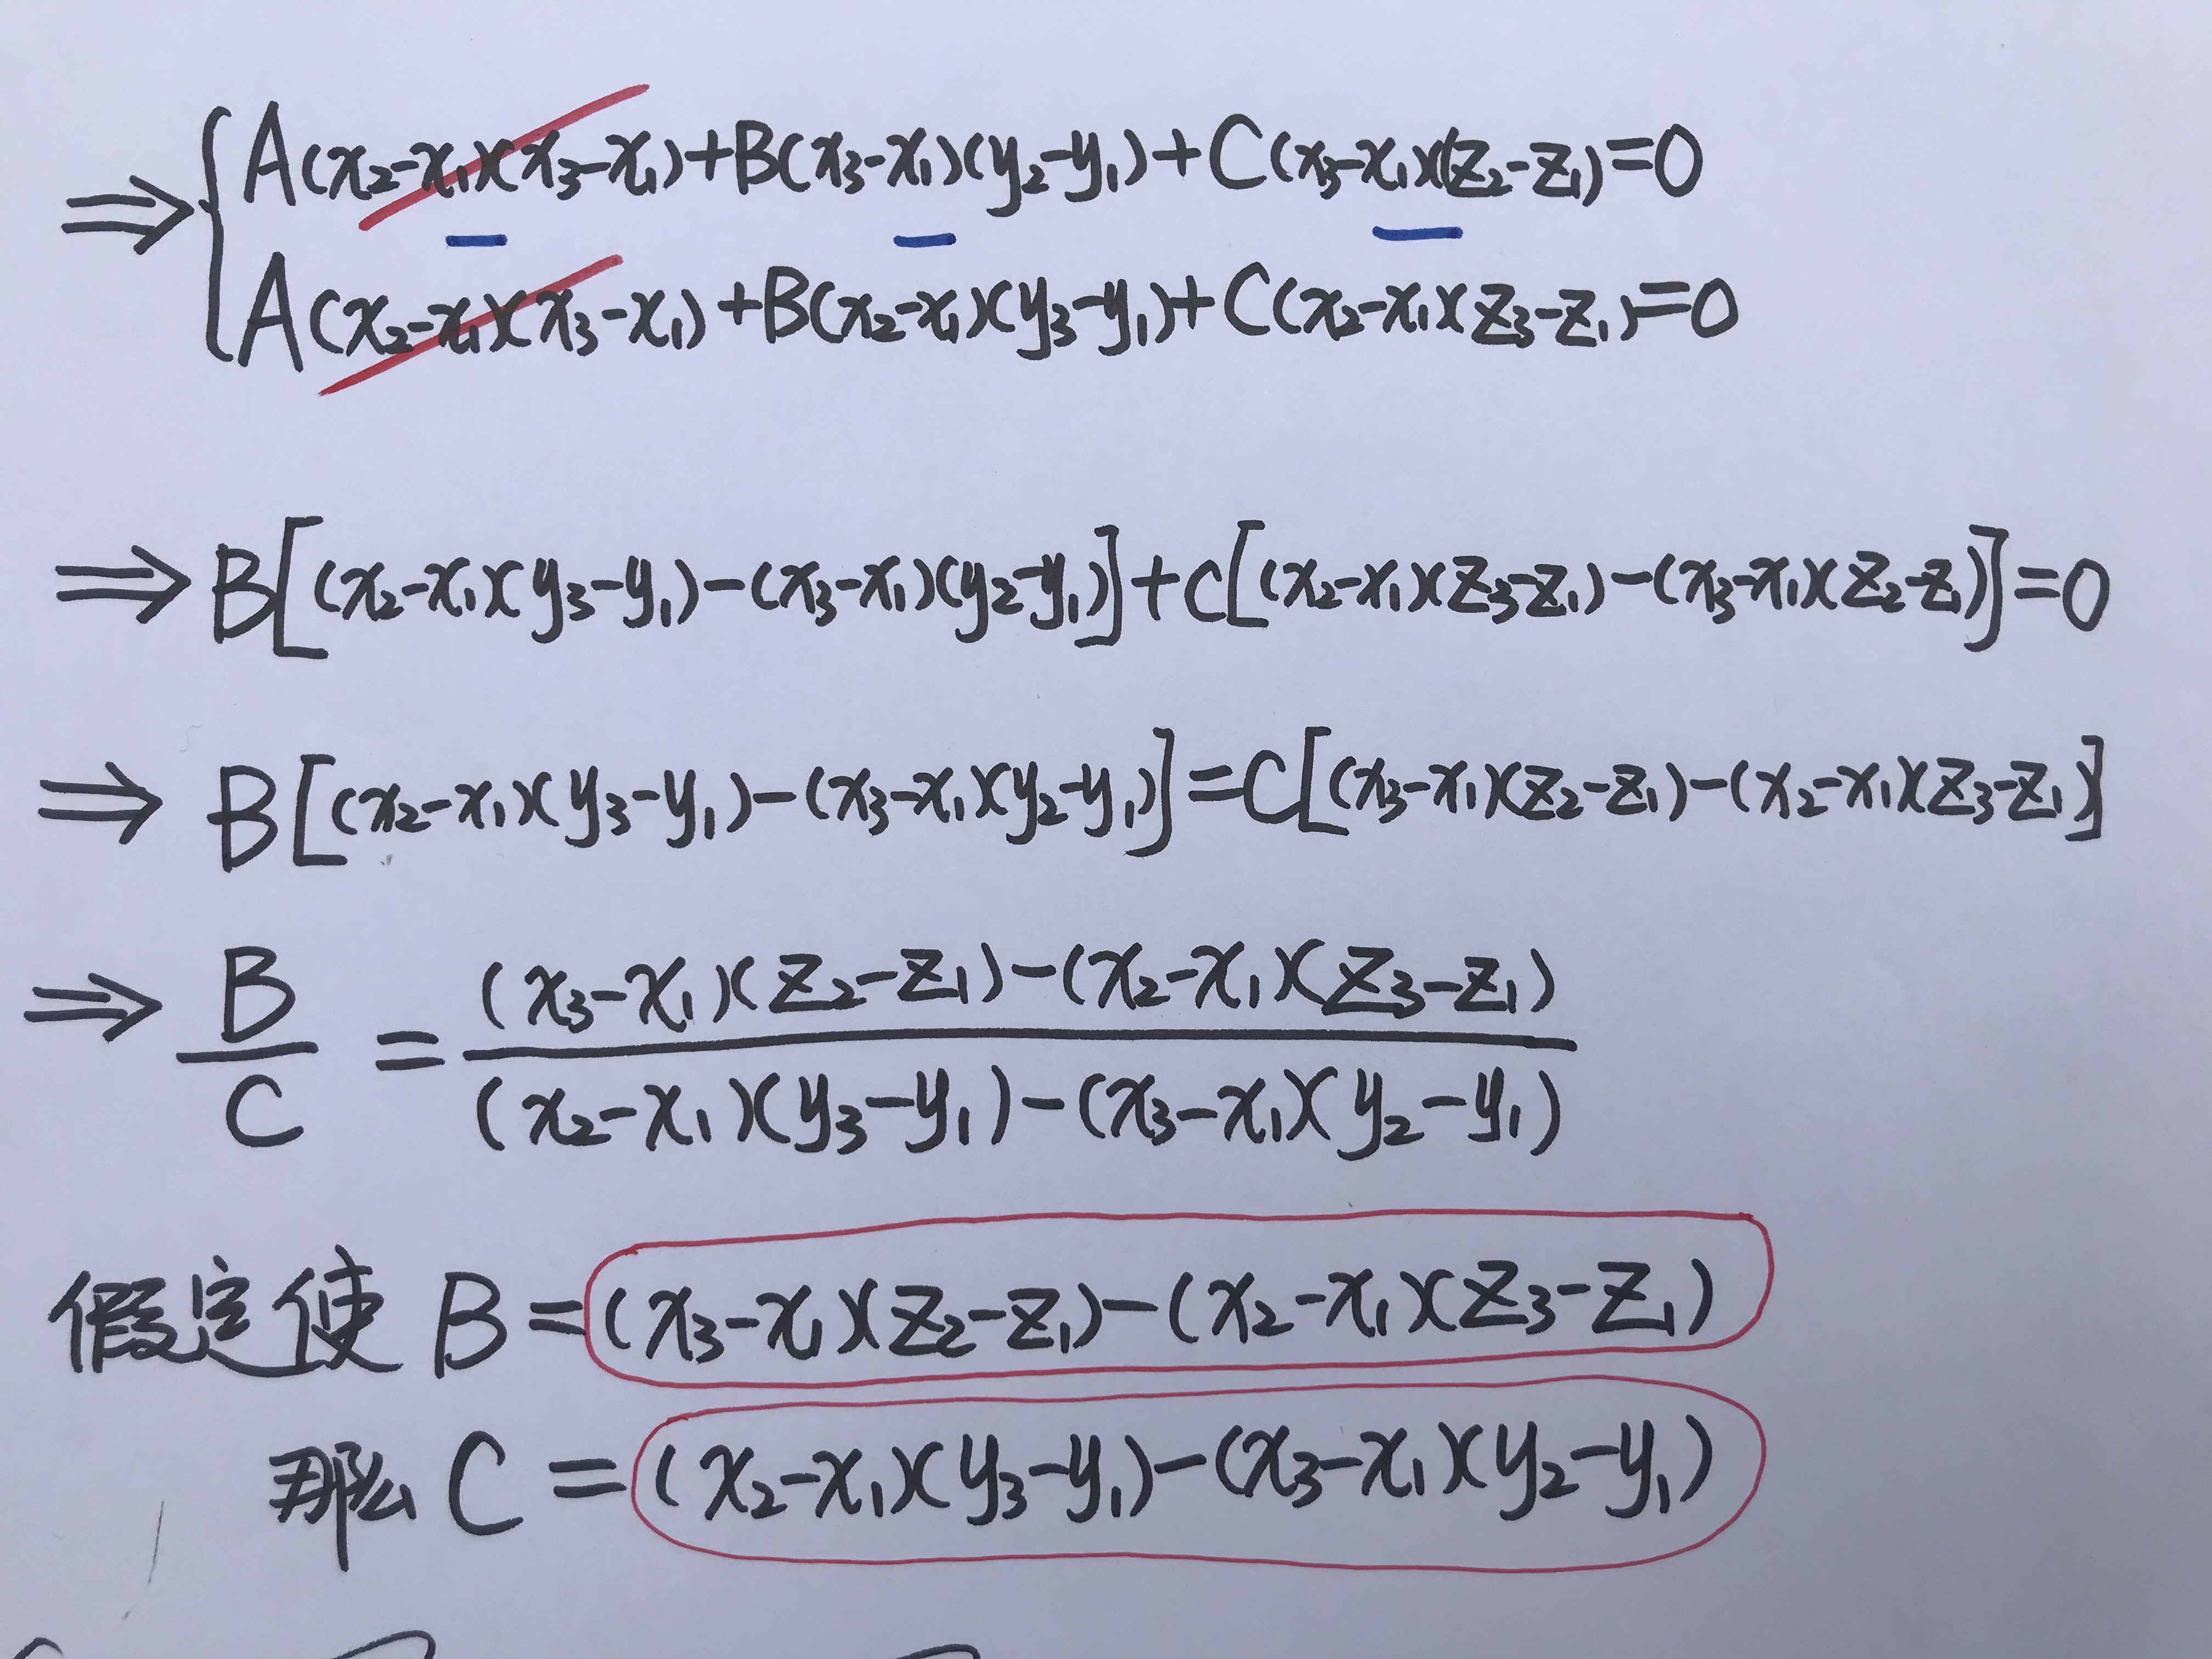 ⇒ { A(x₂-x₁)(x₃-x₁)+B(x₃-x₁)(y₂-y₁)+C(x₃-x₁)(z₂-z₁)=0
A(x₂-x₁)(x₃-x₁)+B(x₂-x₁)(y₃-y₁)+C(x₂-x₁)(z₃-z₁)=0
⇒ B[(x₂-x₁)(y₃-y₁)-(x₃-x₁)(y₂-y₁)]+C[(x₂-x₁)(z₃-z₁)-(x₃-x₁)(z₂-z₁)]=0
⇒ B[(x₂-x₁)(y₃-y₁)-(x₃-x₁)(y₂-y₁)]=C[(x₃-x₁)(z₂-z₁)-(x₂-x₁)(z₃-z₁)]
⇒ B/C = (x₃-x₁)(z₂-z₁)-(x₂-x₁)(z₃-z₁) / (x₂-x₁)(y₃-y₁)-(x₃-x₁)(y₂-y₁)
假定使 B=(x₃-x₁)(z₂-z₁)-(x₂-x₁)(z₃-z₁)
那么 C=(x₂-x₁)(y₃-y₁)-(x₃-x₁)(y₂-y₁)